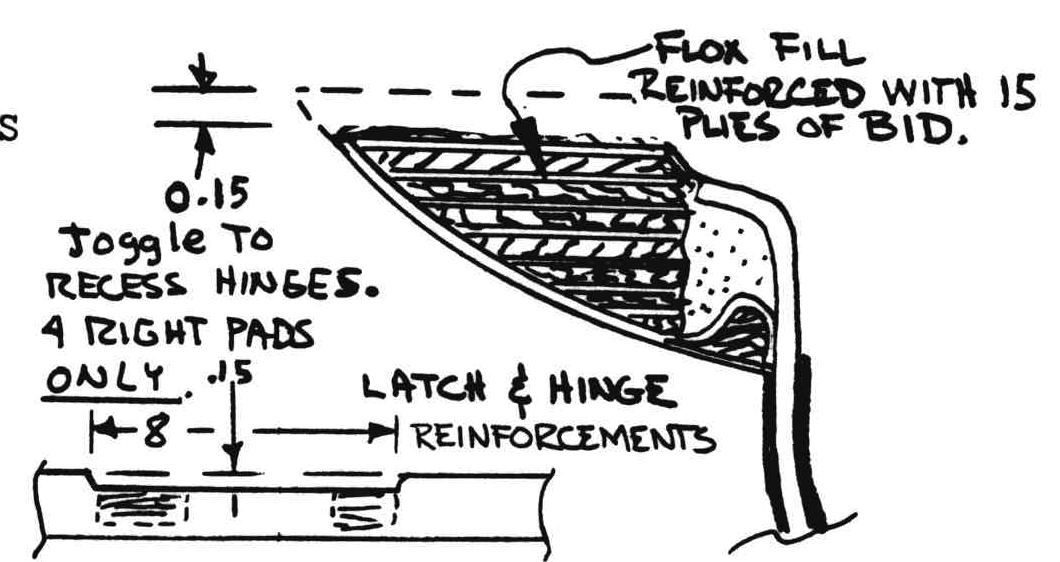 FLOX FILL
REINFORCED WITH 15
PLIES OF BID.
S
0.15
Joggle TO
RECESS HINGES.
4 RIGHT PADS
ONLY.
.15
8
LATCH & HINGE
REINFORCEMENTS